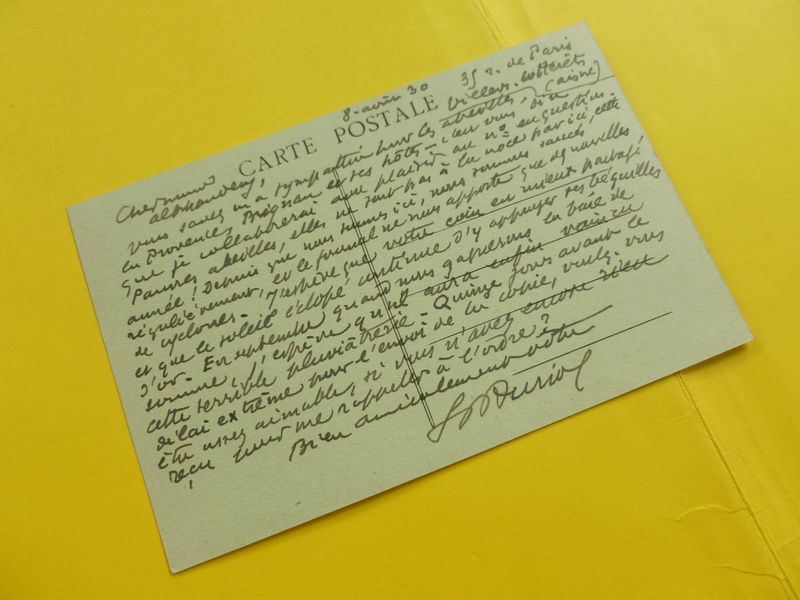 8-août 30 35 r. de Paris
CARTE POSTALE Villers-Cotterêts
(Aisne)
Cher
vous savez ma sympathie pour les abeilles,
la Provence, Avignon et ses hôtes – c'est vous dire
que je collaborerai avec plaisir au n° en question.
Pauvres abeilles, elles ne sont pas à la noce par ici, cette
année! Depuis que nous sommes ici, nous sommes saucés
régulièrement, et le journal ne nous apporte que des nouvelles
de cyclones. J'espère que votre coin est mieux partagé,
et que le soleil éclopé continue d'y appuyer ses béquilles
d'or. En septembre quand nous gagnerons la baie de
Somme, j'espère qu'il aura enfin vaincu
cette terrible pluviâtrerie. Quinze jours avant le
délai extrême pour l'envoi de la copie, voulez-vous
être assez aimable, si vous n'avez encore rien
reçu pour me rappeler à l'ordre?
Bien amicalement votre